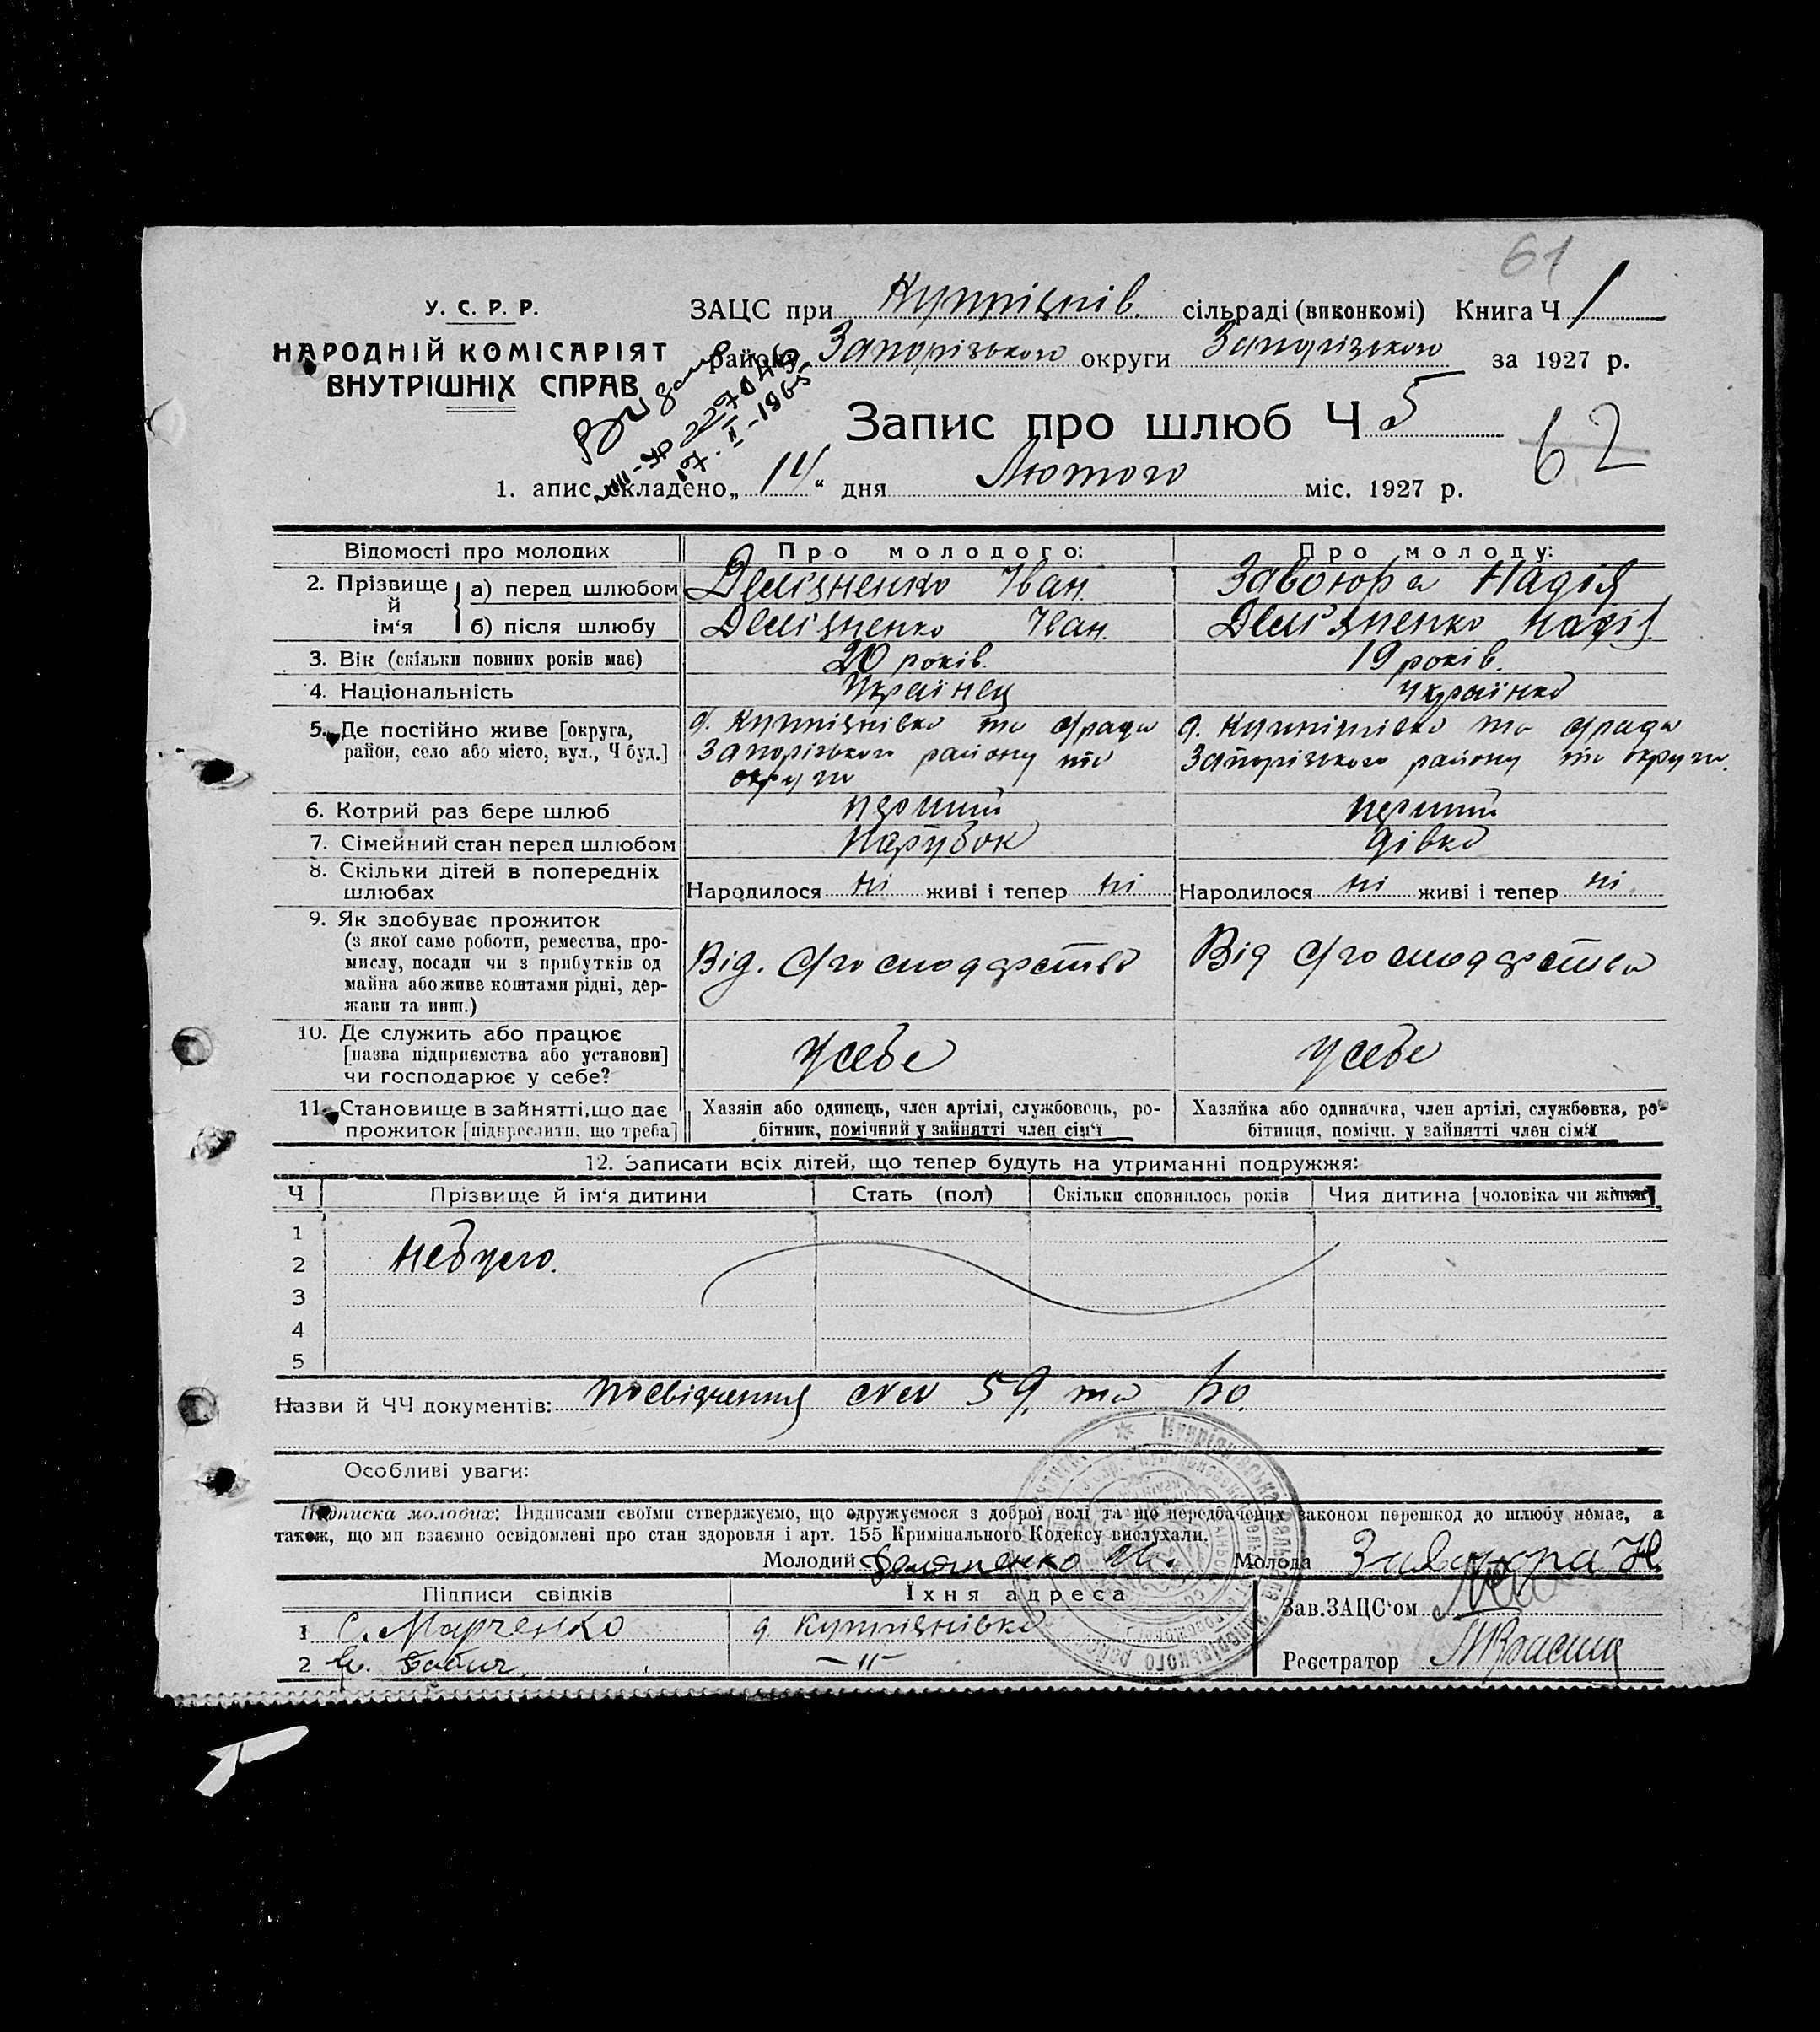 61
У. С. Р. Р.
НАРОДНІЙ КОМІСАРІЯТ
ВНУТРІШНІХ СПРАВ
ЗАЦС при Купріянів. сільраді (виконкомі) Книга Ч 1
району Запорізького округи Запорізького за 1927 р.
Запис про шлюб Ч 5
62
1. апис складено „14“ дня Лютого міс. 1927 р.
Відомості про молодих Про молодого: Про молоду:
2. Прізвище й ім‘я а) перед шлюбом Дем'яненко Іван. Завоюра Надія
б) після шлюбу Дем'яненко Іван. Дем'яненко Надія
3. Вік (скільки повних років має) 20 років. 19 років.
4. Національність Українец Українка
5. Де постійно живе [округа, район, село або місто, вул., Ч буд.] с. Купріянівка та с/рада Запорізького району та округи с. Купріянівка та с/рада Запорізького району та округи.
6. Котрий раз бере шлюб перший перший
7. Сімейний стан перед шлюбом Парубок дівка
8. Скільки дітей в попередніх шлюбах Народилося ні живі і тепер ні Народилося ні живі і тепер ні.
9. Як здобуває прожиток
(з якої саме роботи, ремества, про-
мислу, посади чи з прибутків од
майна або живе коштами рідні, дер-
жави та инш.)
Від. с/господарства Від с/господарства
10. Де служить або працює
[назва підприємства або установи]
чи господарює у себе?
У себе У себе
11. Становище в зайнятті, що дає
прожиток [підкреслити, що треба]
Хазяїн або одинець, член артілі, службовець, ро-
бітник, помічний у зайнятті член сім‘ї
Хазяйка або одиначка, член артілі, службовка, ро-
бітниця, помічн. у зайнятті член сім‘ї
12. Записати всіх дітей, що тепер будуть на утриманні подружжя:
Ч Прізвище й ім‘я дитини Стать (пол) Скільки сповнилось років Чия дитина [чоловіка чи жінки]
1
2 Небуло.
3
4
5
Назви й ЧЧ документів: посвідчення 59, та 60.
Особливі уваги:
Підписка молодих: Підписами своїми стверджуємо, що одружуємося з доброї волі та що передбачених законом перешкод до шлюбу немає, а
також, що ми взаємно освідомлені про стан здоровля і арт. 155 Кримінального Кодексу вислухали.
Молодий Демяненко Ив. Молода Завоюра Н
Підписи свідків Їхня адреса Зав. ЗАЦС‘ом
1 С. Марченко с. Купріянівка
2 Бабич —"—
Реєстратор